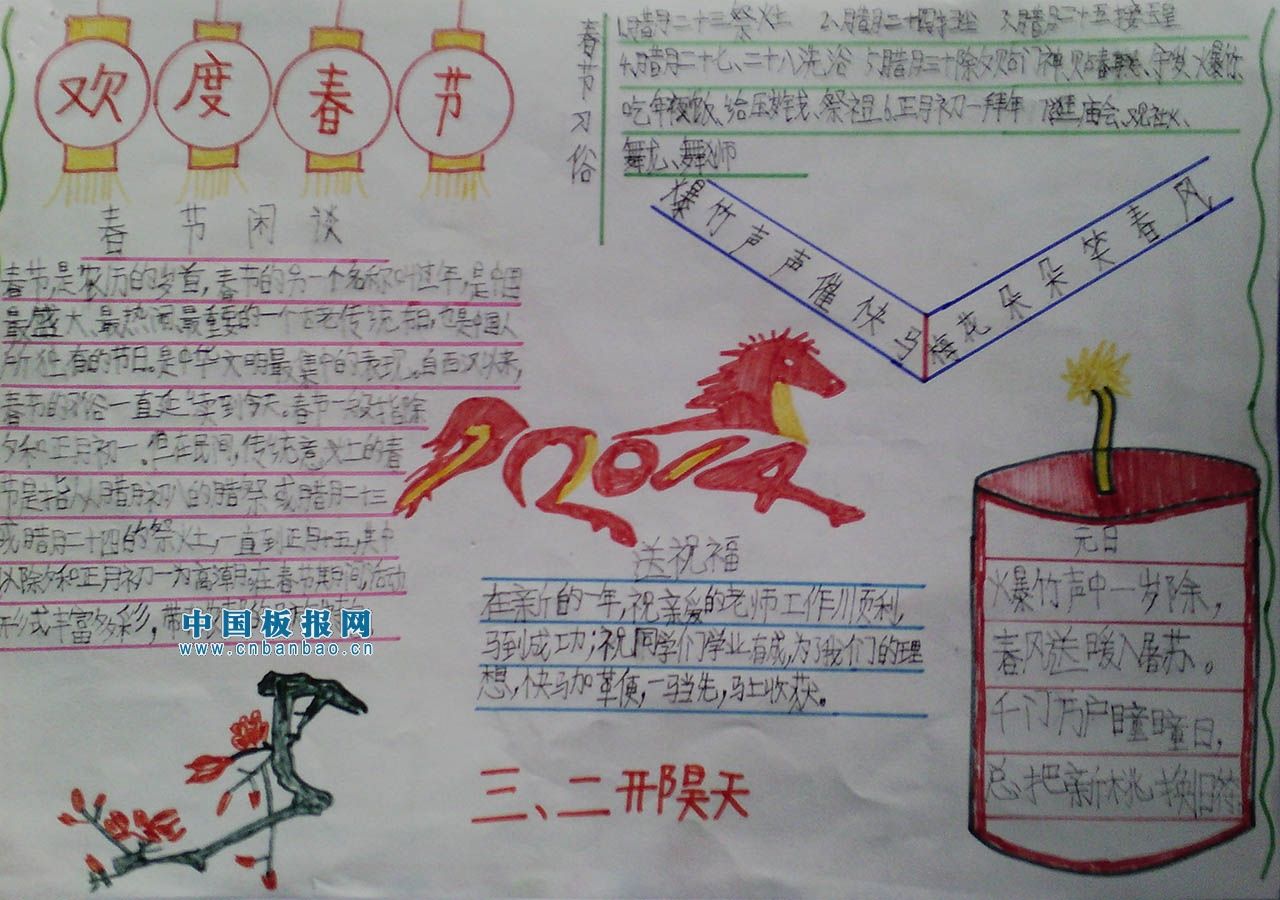 欢度春节
春节闲谈
春节是农历的岁首,春节的另一个名称叫过年,是中国
最盛大、最热闹、最重要的一个古老传统节日,也是中国人
所独有的节日。是中华文明最集中的表现。自西汉以来,
春节的习俗一直延续到今天。春节一般指除
夕和正月初一。但在民间,传统意义上的春
节是指从腊月初八的腊祭或腊月二十三
或腊月二十四的祭灶,一直到正月十五,其中
以除夕和正月初一为高潮。在春节期间,活动
形式丰富多彩,带
中国板报网
www.cnbanbao.cn
春节习俗
1.腊月二十三祭灶 2.腊月二十四扫尘 3.腊月二十五接玉皇
4.腊月二十七、二十八洗浴 5.腊月三十除夕贴门神、贴春联、守岁、爆竹、
吃年夜饭、给压岁钱、祭祖 6.正月初一拜年 7.逛庙会、观社火、
舞龙、舞狮
爆竹声声催快马
梅花朵朵笑春风
2014
送祝福
在新的一年,祝亲爱的老师工作顺利,
马到成功;祝同学们学业有成,为了我们的理
想,快马加革便,一马当先,马上收获。
三、二 邢昊天
元日
火暴竹声中一岁除,
春风送暖入屠苏。
千门万户瞳瞳日,
总把新桃换旧符